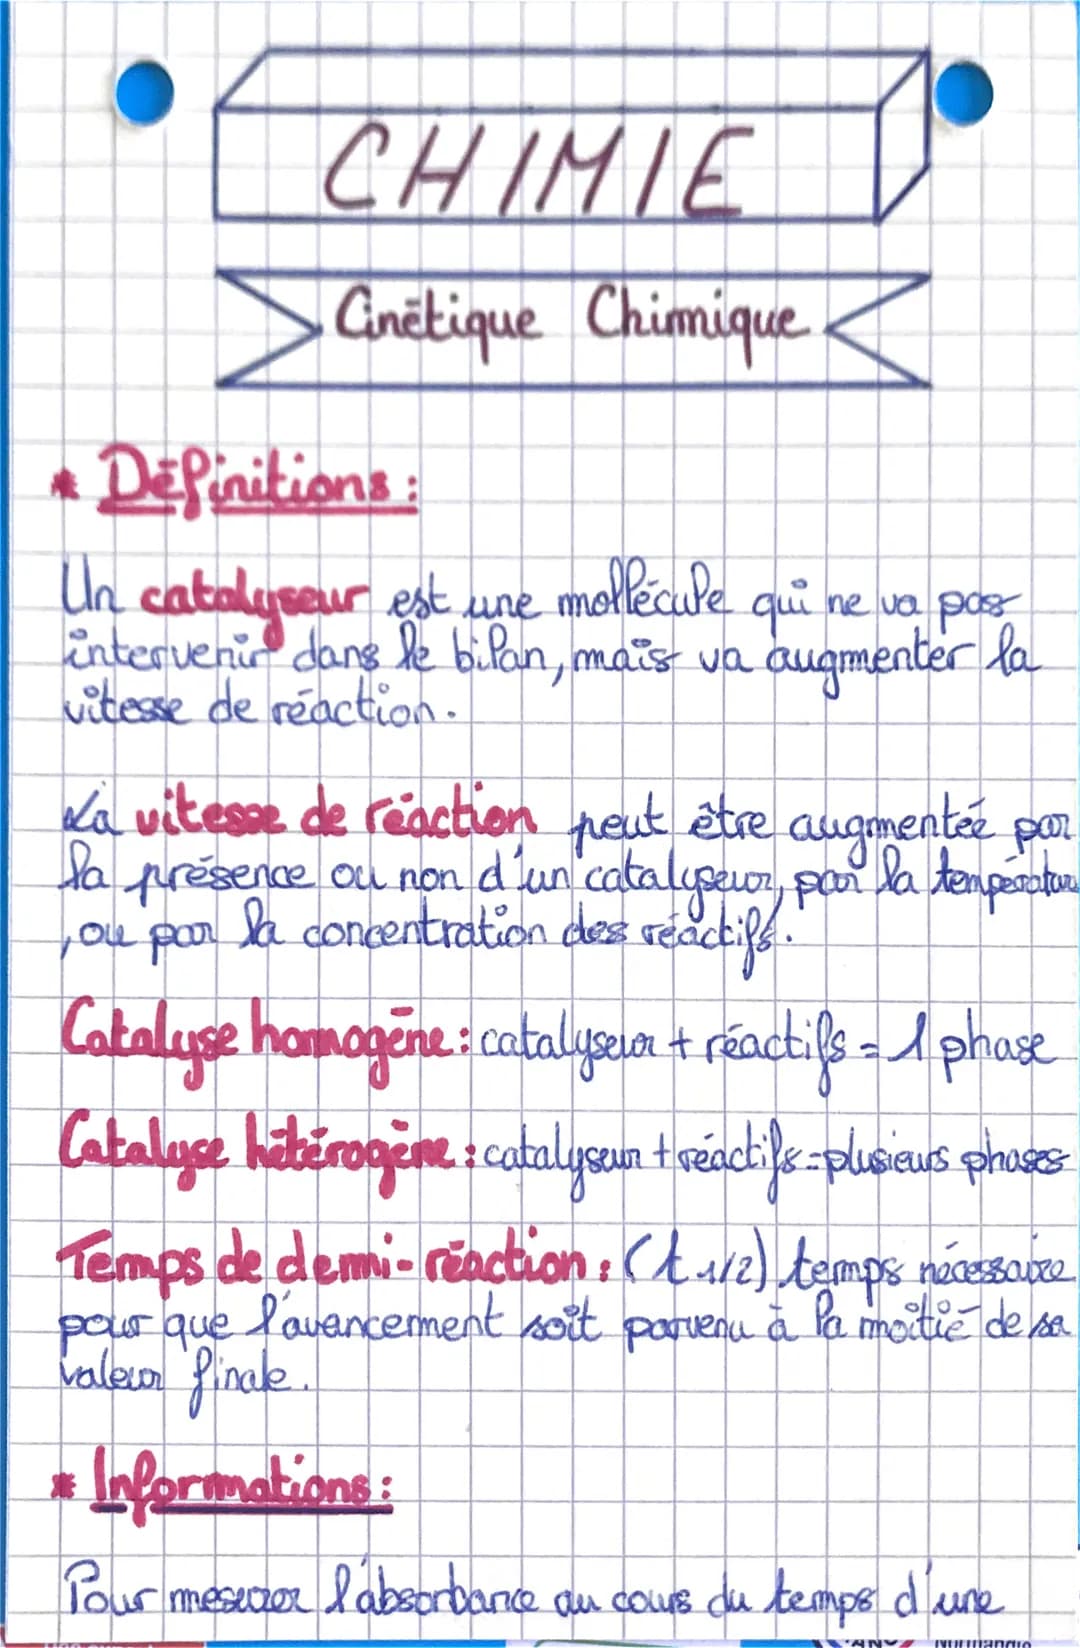 CHIMIE
Cinétique Chimique
* Définitions :
Un catalyseur est une mollécule qui ne va pas
intervenir dans le bilan, mais va augmenter la
vitesse de réaction.
La vitesse de réaction peut être augmentée par
la présence ou non d'un catalyseur, par la températur
, ou par la concentration des réactifs.
Catalyse homogène : catalyseur + réactifs = 1 phase
Catalyse hétérogène : catalyseur + réactifs = plusieurs phases
Temps de demi-réaction : (t 1/2) temps nécessaire
pour que l'avancement soit parvenu à la moitié de sa
valeur finale.
* Informations :
Pour mesurer l'absorbance au cours du temps d'une